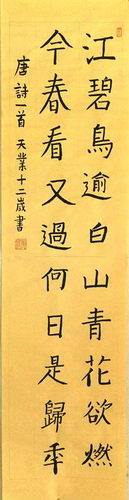 江碧鳥逾白山青花欲燃
今春看又過何日是歸年
唐詩一首 天業十二歲書